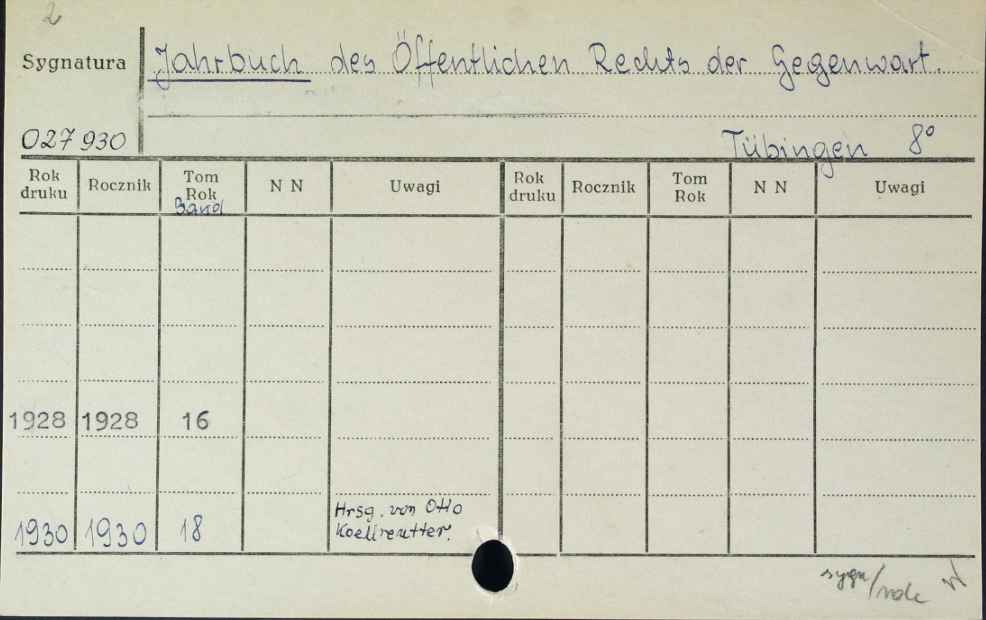 2
Sygnatura Jahrbuch des Öffentlichen Rechts der Gegenwart.
027 930 Tübingen 8°
Rok druku Rocznik Tom Rok Band N N Uwagi Rok druku Rocznik Tom Rok N N Uwagi
1928 1928 16
1930 1930 18 Hrsg. von Otto
Koellreutter.
sygn/